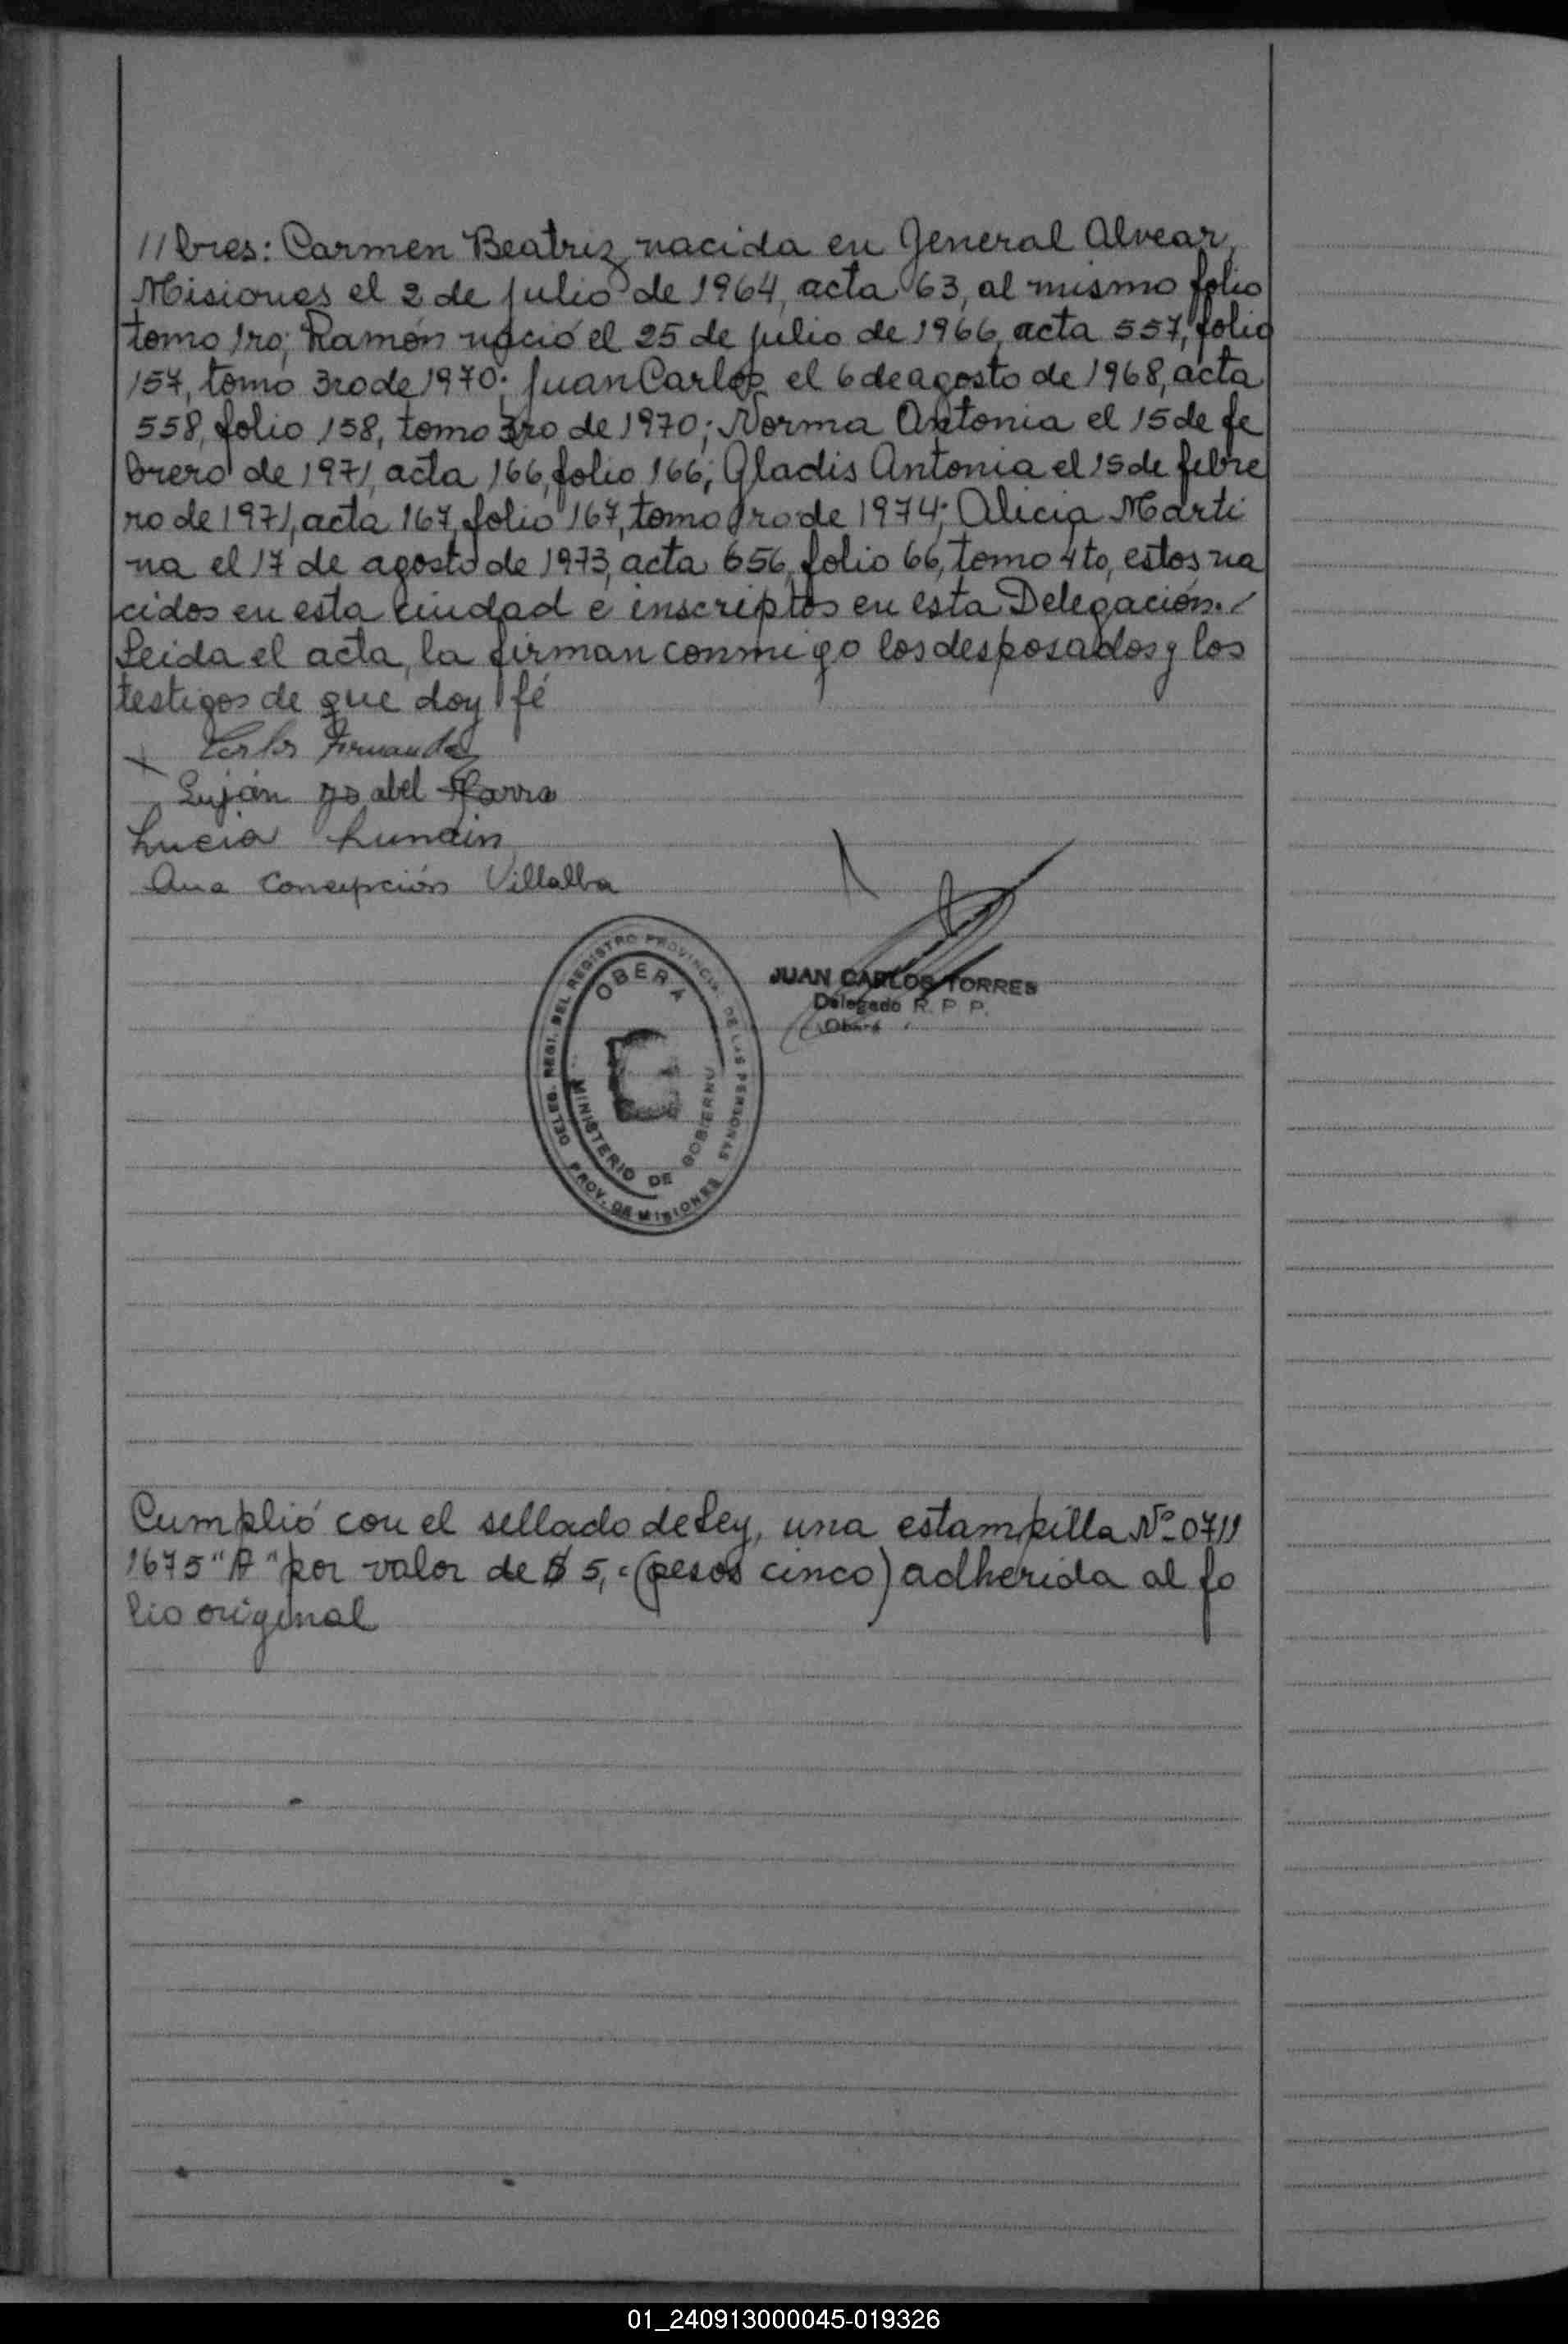 //bres: Carmen Beatriz, nacida en General Alvear,
Misiones el 2 de julio de 1964, acta 63, al mismo folio
tomo 1ro; Ramón nació el 25 de julio de 1966, acta 557, folio
157, tomo 3ro de 1970; Juan Carlos el 6 de agosto de 1968, acta
558, folio 158, tomo 3ro de 1970; Norma Antonia el 15 de fe
brero de 1971, acta 166, folio 166; Gladis Antonia el 15 de febre
ro de 1971, acta 167, folio 167, tomo 1ro de 1974; Alicia Marti
na el 17 de agosto de 1973, acta 656, folio 66, tomo 4to, estos na
cidos en esta ciudad e inscriptos en esta Delegación.
Leida el acta, la firman conmigo los desposados y los
testigos de que doy fé
Carlos Fernandez
Luján Ysabel
Lucia
Ana Concepción Villalba
DELEG. REGI. DEL REGISTRO PROVINCIAL DE LAS PERSONAS
OBERA
MINISTERIO DE GOBIERNO
PROV. DE MISIONES
JUAN CARLOS TORRES
Delegado R. P. P.
Oberá
Cumplió con el sellado de Ley, una estampilla Nº 071//
1675 "A" por valor de $ 5,= (pesos cinco) adherida al fo
lio original
01_240913000045-019326